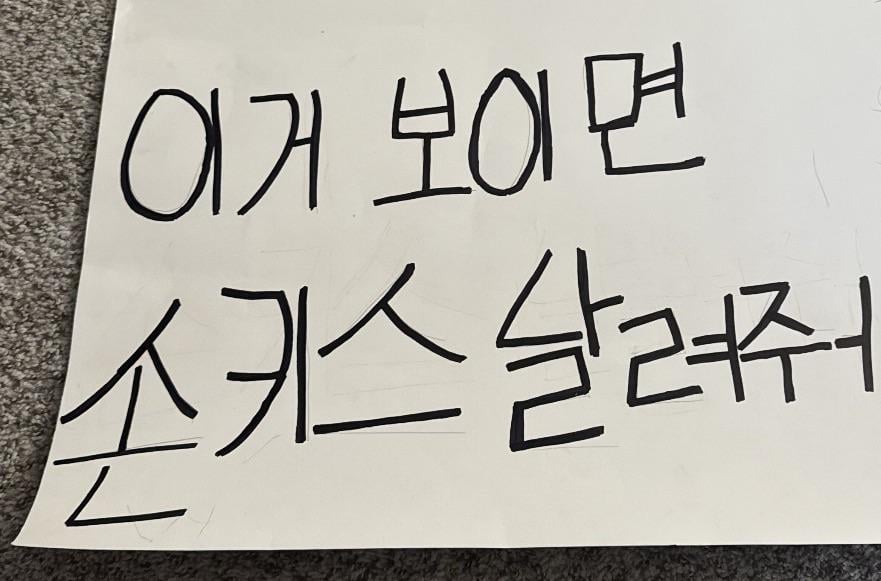 이거 보이면
손키스 날려줘